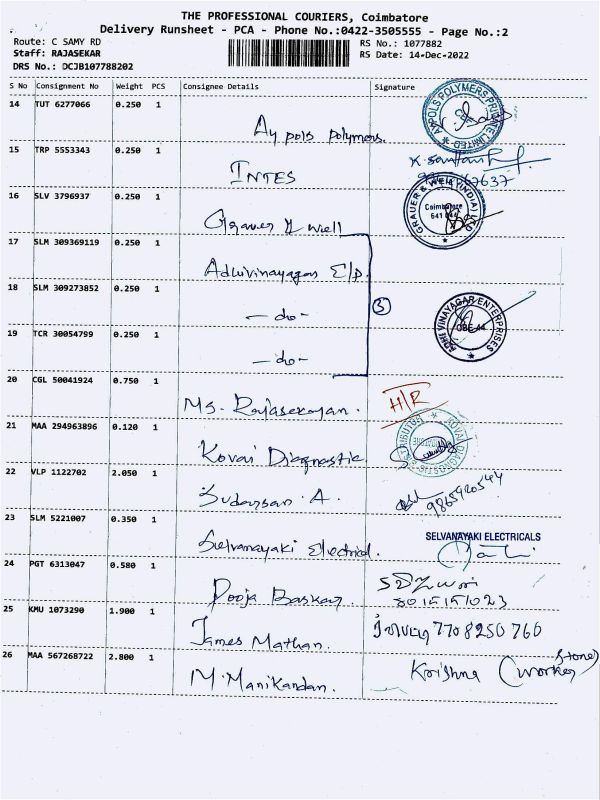 THE PROFESSIONAL COURIERS, Coimbatore
Delivery Runsheet - PCA - Phone No.:0422-3505555 - Page No.:2
Route: C SAMY RD
RS No.: 1077882
Staff: RAJASEKAR
RS Date: 14-Dec-2022
DRS No.: DCJB107788202
S No Consignment No Weight PCS Consignee Details Signature
14 TUT 6277066 0.250 1
Ay pols polymers.
15 TRP 5553343 0.250 1
INTES
K. Santhosh
16 SLV 3796937 0.250 1
GRAUER & WEIL (INDIA) LTD
Coimbatore
641 044
Grauer & Well
17 SLM 309369119 0.250 1
Adhivinayagar E/P.
18 SLM 309273852 0.250 1
3
ADHI VINAYAGAR ENTERPRISES
CBE-44
- do -
19 TCR 30054799 0.250 1
- do -
20 CGL 50041924 0.750 1
H/R
Ms. Rajasekaran.
21 MAA 294963896 0.120 1
Kovai Diagnostic
22 VLP 1122702 2.050 1
Sudarsan A.
9865920544
23 SLM 5221007 0.350 1
SELVANAYAKI ELECTRICALS
Selvanayaki Electrical.
24 PGT 6313047 0.580 1
Pooja Baskar
8015151023
25 KMU 1073290 1.900 1
7708250760
James Mathan.
26 MAA 567268722 2.800 1
Krishna (Stone worker)
M. Manikandan.